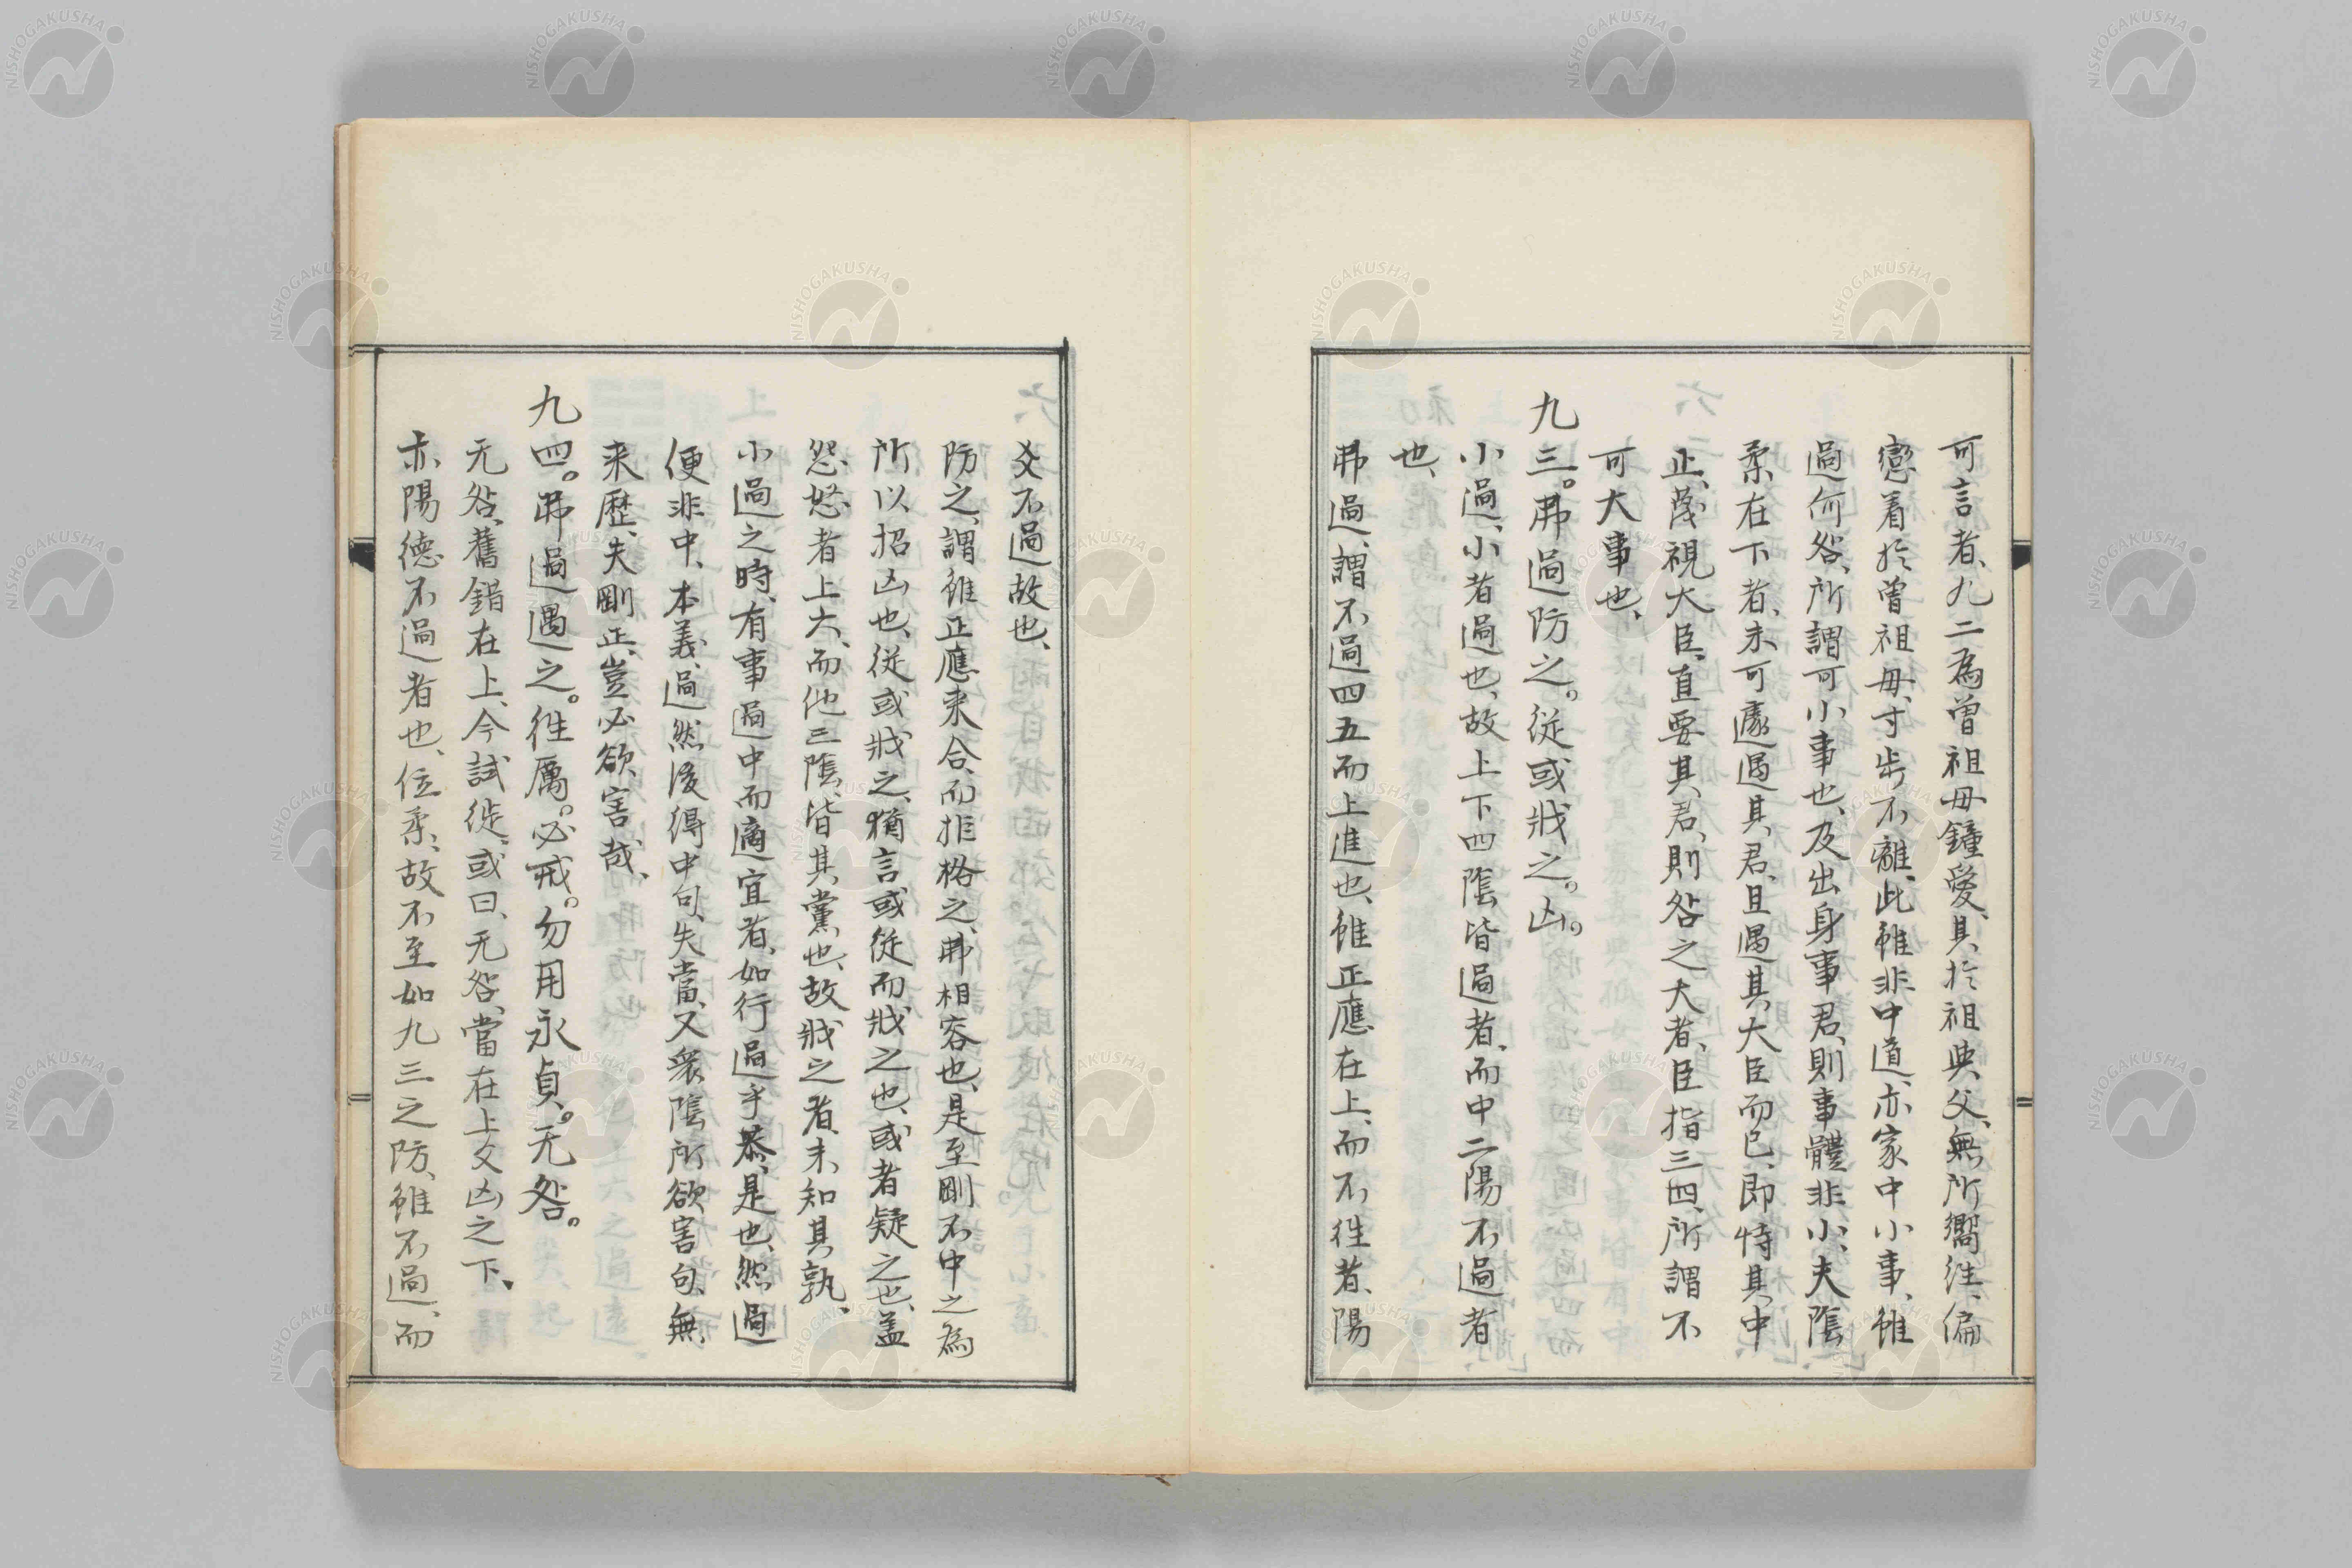 可言者、九二為曽祖毋鐘愛、其於祖與父、無所嚮往、偏
戀着於曽祖毋、寸歩不離、此雖非中道、亦家中小事、雖
過何咎、所謂可小事也、及出身事君、則事體非小、夫陰
柔在下者、未可遽遇其君、且遇其大臣而已、即恃其中
正、蔑視大臣、直要其君、則咎之大者、臣指三四、所謂不
可大事也、
九三。弗過防之。従或戕之。凶。
小過、小者過也、故上下四陰皆過者、而中二陽不過者
也、
弗過、謂不過四五而上進也、雖正應在上、而不往者、陽
爻不過故也、
防之、謂雖正應来合、而拒格之、弗相容也、是至剛不中之為
所以招凶也、従或戕之、猶言或従而戕之也、或者疑之也、盖
怨怒者上六、而他三陰、皆其黨也、故戕之者、未知其孰、
小過之時、有事過中而適宜者、如行過乎恭、是也、然過
便非中、本義、過然後得中句、失當、又衆陰所欲害句、無
来歴、夫剛正、豈必欲害哉、
九四。弗過遇之。往厲。必戒。勿用永貞。无咎。
无咎、舊錯在上、今試徙、或曰、无咎、當在上爻凶之下、
亦陽德不過者也、位柔、故不至如九三之防、雖不過、而
NISHOGAKUSHA